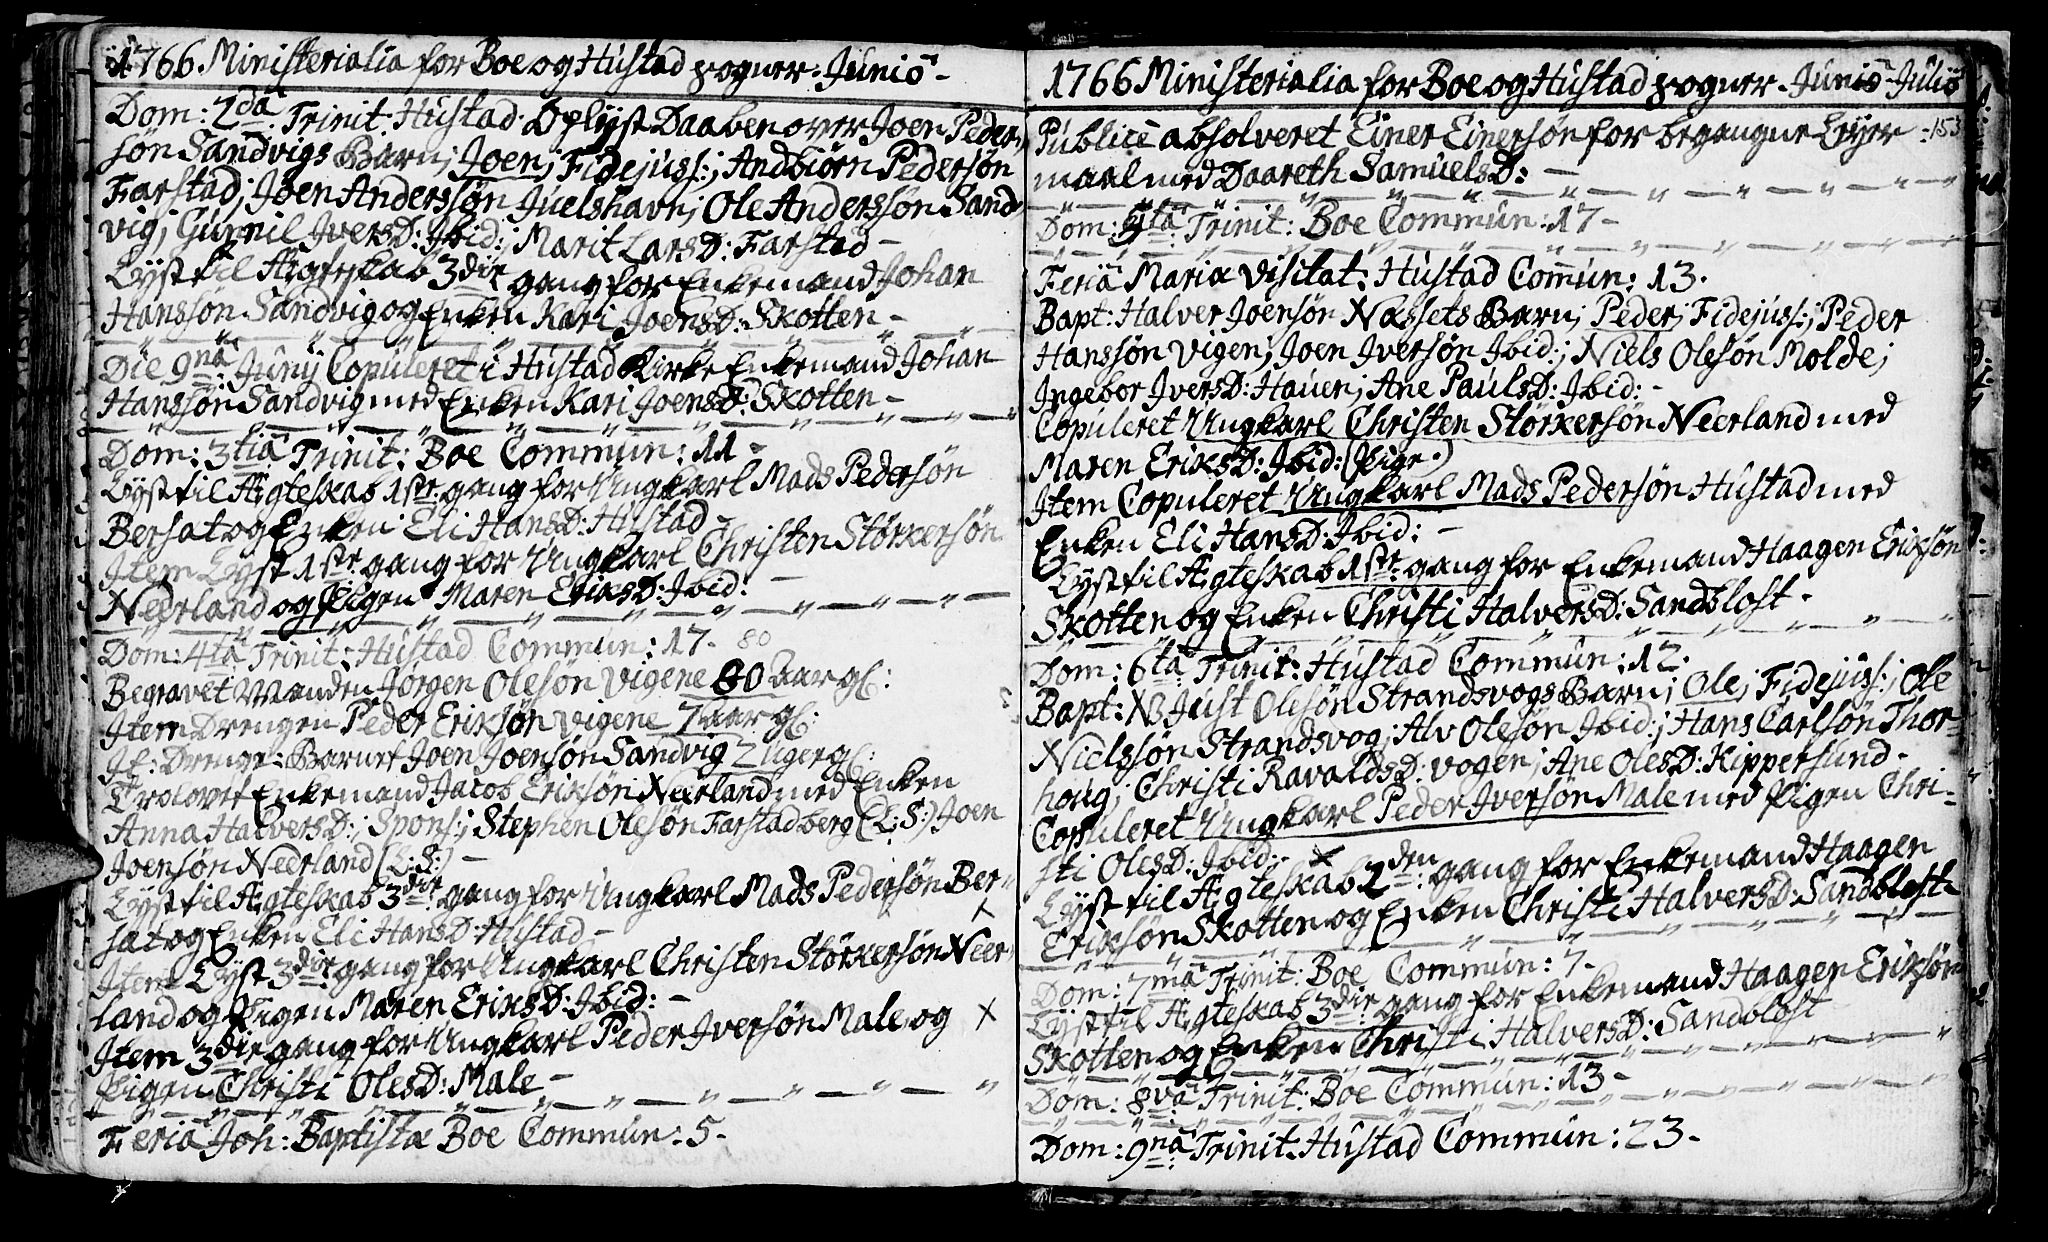 1766 Ministerialia for Boe og Hustad sogner. Junio -
Dom: 2dâ Trinit: Hustad. Oplyst Daaben over Joen Peder,
søn Sandvigs Barn; Joen; Fidejuss:; Andbiørn Pedersøn
Farstad; Joen Anderssøn Juelshavn; Ole Anderssøn Sand-
vig; Gunnil IversD: Ibid:; Marit LarsD: Farstad -
Lyst til Ægteskab 3die gang for Enkemand Johan
Hanssøn Sandvig og Enken Kari JoensD: Skotten -
Die 9nâ Junij Copuleret i Hustad Kirke Enkemand Johan
Hanssøn Sandvig med Enken Kari JoensD: Skotten -
Dom: 3tiâ Trinit: Boe Commun: 11 -
Lyst til Ægteskab 1ste gang for Ungkarl Mads Pedersøn
Bersat og Enken Eli HansD: Hustad -
Item Lyst 1ste gang for Ungkarl Christen Størkersøn
Neerland og Pigen Maren EriksD: Ibid: -
Dom: 4tâ Trinit: Hustad Commun: 17. 80
Begravet Manden Jørgen Olesøn Vigene 80 Aar gl:
Item Drengen Peder Eriksøn Vigene 7 aar gl:
It: Drenge-Barnet Joen Joensøn Sandvig 2 Uger gl:
Trolovet Enkemand Jacob Eriksøn Neerland med Enken
Anna HalversD:; Spons:; Stephen Olesøn Farstadberg (L:S:) Joen
Joensøn Neerland (L:S:) -
Lyst til Ægteskab 3die gang for Ungkarl Mads Pedersøn Ber-
sat og Enken Eli HansD: Hustad - x
Item Lyst 3die gang for Ungkarl Christen Størkersøn Neer-
land og Pigen Maren EriksD: Ibid: -
Item 3die gang for Ungkarl Peder Iversøn Male og x
Pigen Christi OlesD: Male -
Feriâ Joh: Baptistæ Boe Commun: 5 -
1766 Ministerialia for Boe og Hustad sogner - Junio - Julio
153
Publicè absolveret Einer Einersøn for begangne Leyer-
maal med Daareth SamuelsD: -
Dom: 5tâ Trinit: Boe Commun: 17 -
Feriâ Mariæ Visitat: Hustad Comun: 13.
Bapt: Halver Joensøn Næssets Barn; Peder; Fidejuss:; Peder
Hanssøn Vigen; Joen Iversøn Ibid:; Niels Olesøn Molde;
Ingebor IversD: Hauen; Ane PaulsD: Ibid: -
Copuleret Ungkarl Christen Størkersøn Neerland med
Maren EriksD: Ibid: (Pige.)
Item Copuleret Ungkarl Mads Pedersøn Hustad med
Enken Eli HansD: Ibid: -
Lyst til Ægteskab 1ste gang for Enkemand Haagen Eriksøn
Skotten og Enken Christi HalversD: Sandblost.
Dom: 6tâ Trinit: Hustad Commun: 12.
Bapt: NB Just Olesøn Strandsvogs Barn; Ole; Fidejuss:; Ole
Nielssøn Strandsvog; Alv Olesøn Ibid:; Hans Carlsøn Thor-
houg; Christi RavaldsD: Vogen; Ane OlesD: Kippersund -
Copuleret Ungkarl Peder Iversøn Male med Pigen Chri-
sti OlesD: Ibid: - x
Lyst til Ægteskab 2den gang for Enkemand Haagen
Eriksøn Skotten og Enken Christi HalversD: Sandblost
Dom: 7mâ Trinit: Boe Commun: 7 -
Lyst til Ægteskab 3die gang for Enkemand Haagen Eriksøn
Skotten og Enken Christi HalversD: Sandblost
Dom: 8vâ Trinit: Boe Commun: 13 -
Dom: 9nâ Trinit: Hustad Commun: 23 -